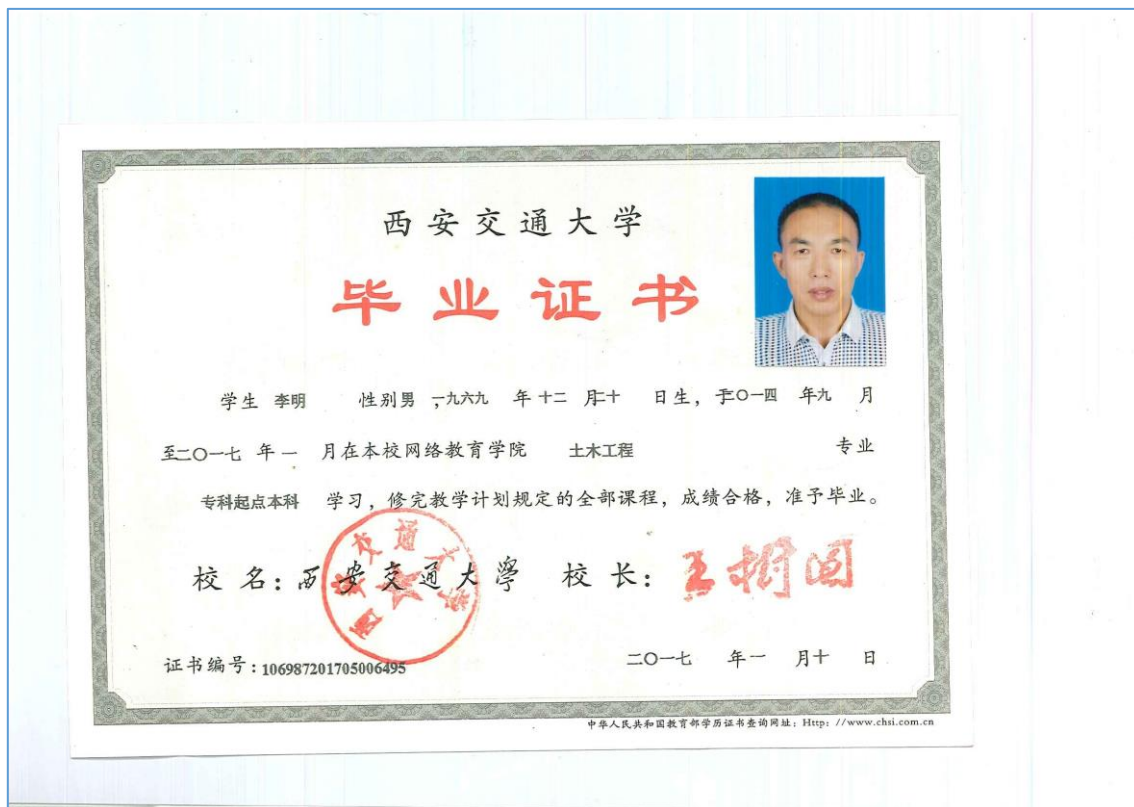 西安交通大学
毕业证书
学生 李明 性别男，一九六九 年十二 月二十 日生，于二〇一四 年九 月
至二〇一七 年一 月在本校网络教育学院 土木工程 专业
专科起点本科 学习，修完教学计划规定的全部课程，成绩合格，准予毕业。
校名：西安交通大學 校长：王树国
西安交通大学
证书编号：106987201705006495 二〇一七 年一 月十 日
中华人民共和国教育部学历证书查询网址：Http：//www.chsi.com.cn